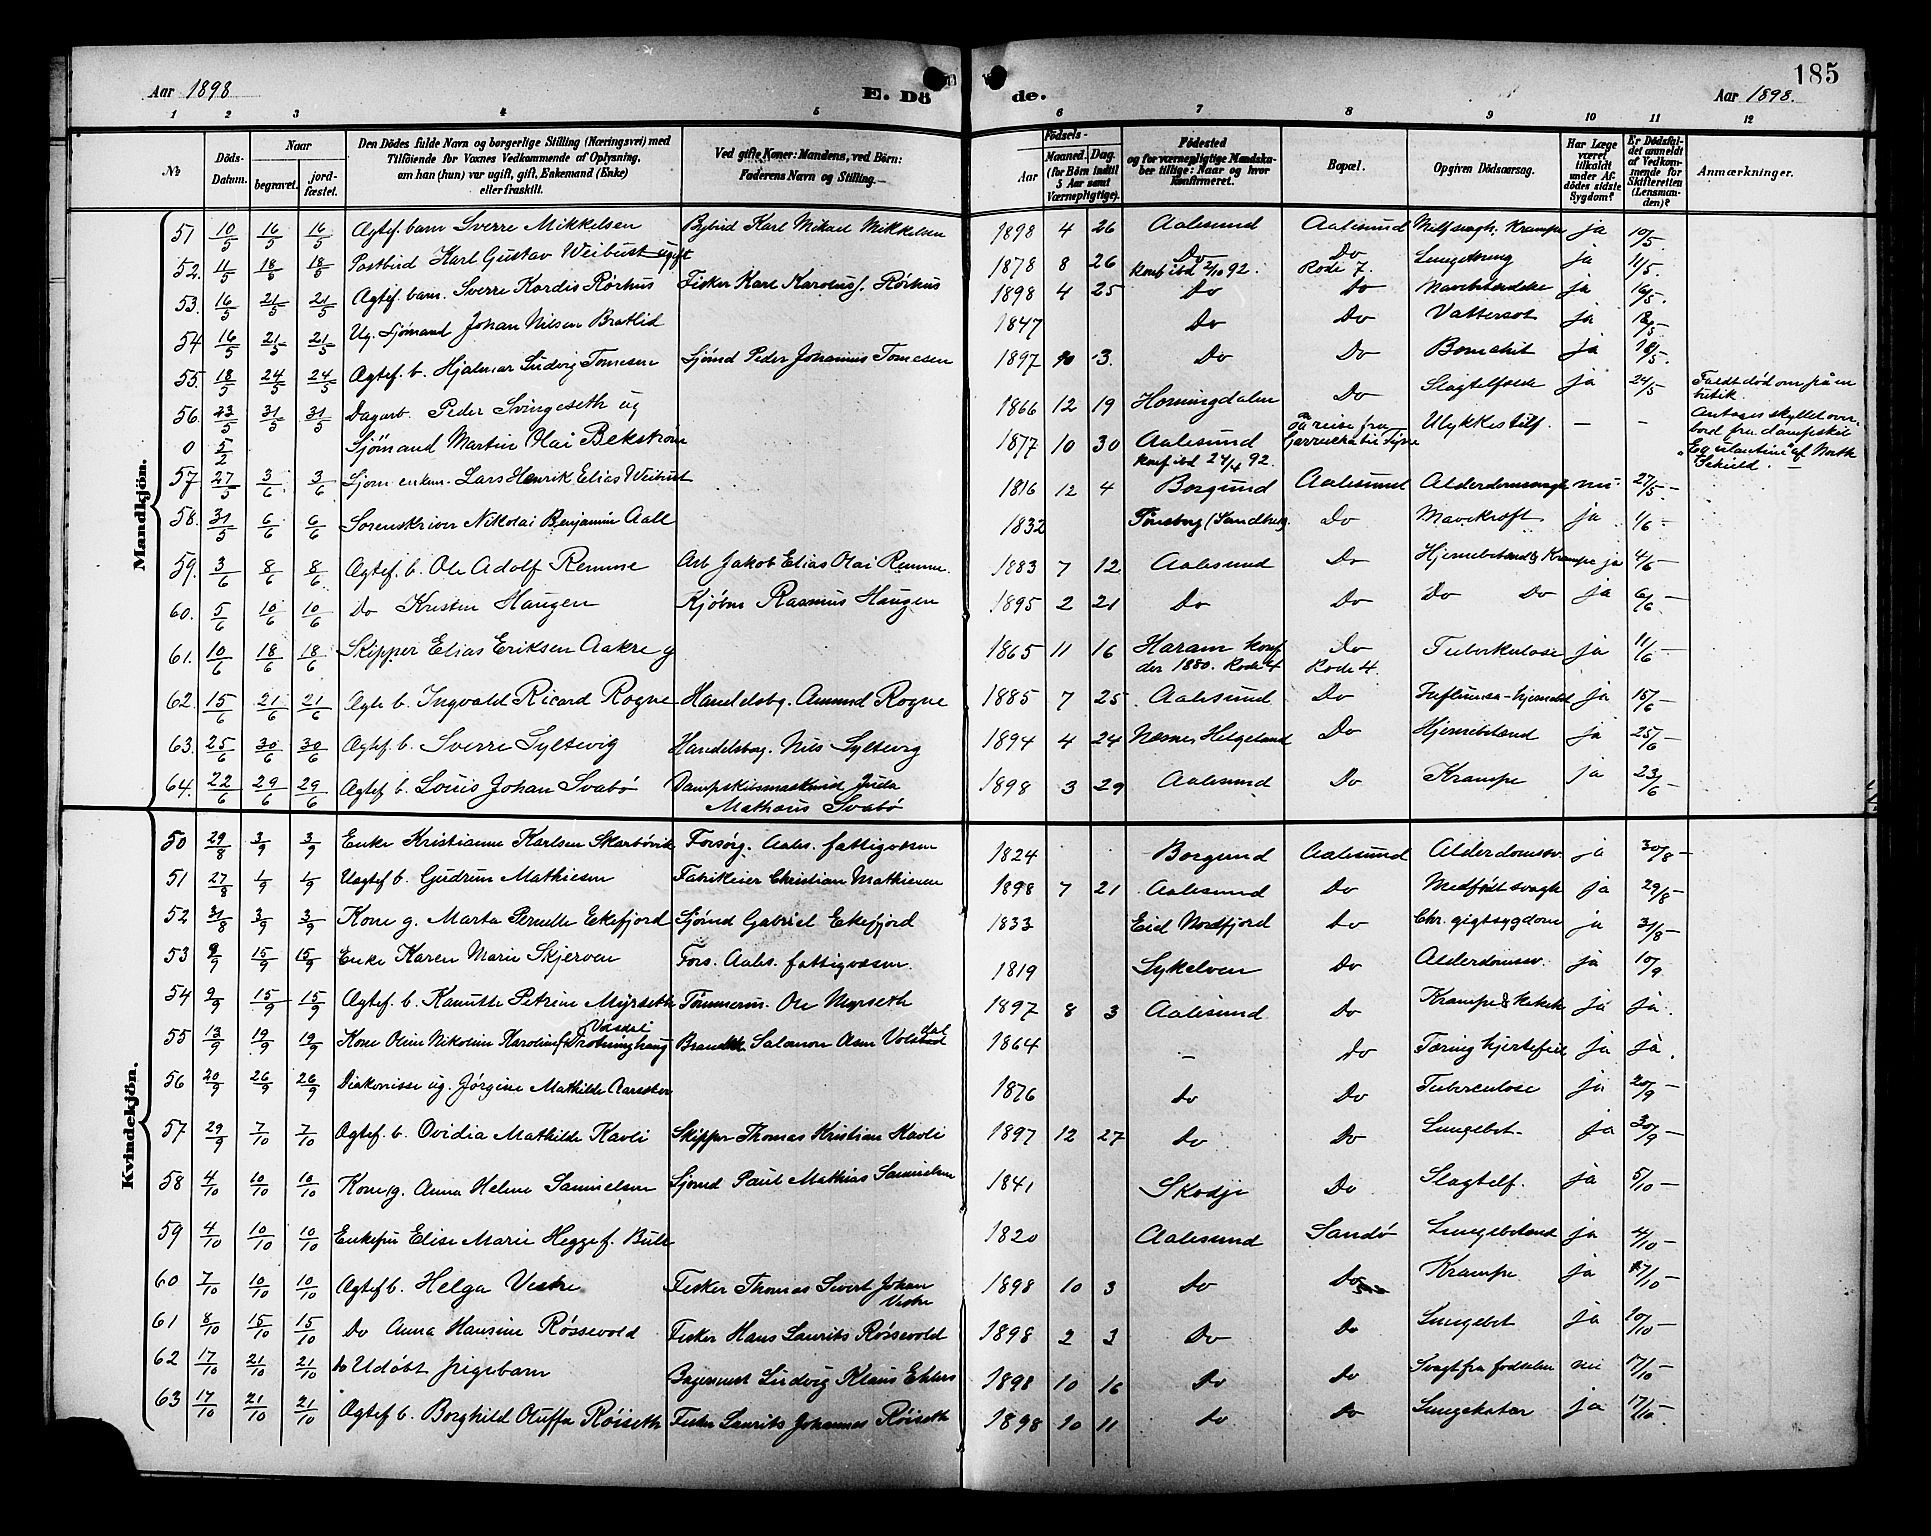 Aar 1898 E. Dö de. Aar 1898. 185
1 2 3 4 5 6 7 8 9 10 11 12
No Döds-Datum. Naar begravet. jordfæstet. Den Dödes fulde Navn og borgerlige Stilling (Næringsvei) med Tilföiende for Voxnes Vedkommende af Oplysning, om han (hun) var ugift, gift, Enkemand (Enke) eller fraskilt. Ved gifte Koner: Mandens, ved Börn: Faderens Navn og Stilling. Födsels- Aar Maaned. Dag. (for Börn indtil 5 Aar samt Værnepligtige). Födested og for værnepligtige Mandskaber tillige: Naar og hvor Konfirmeret. Bopæl. Opgiven Dödsaarsag. Har Læge været tilkaldt under Afdödes sidste Sygdom? Er Dödsfaldet anmeldt af Vedkommende for Skifteretten (Lensmanden)? Anmærkninger.
Mandkjön.
51 10/5 16/5 16/5 Ægtef. barn Sverre Mikkelsen Bybud Karl Mikael Mikkelsen 1898 4 26 Aalesund Aalesund Krampe ja 10/5.
52. 11/5 18/5 18/5 Postbud Karl Gustav Weibust ugift 1878 8 26 Do konf ibd 2/10 92. Do Rode 7. ja 11/5.
53. 16/5 21/5 21/5 Ægtef. barn. Sverre Kordis Rörhus Fisker Karl Karolus J. Rörhus 1898 4 25 Do Do ja 16/5.
54 16/5 21/5 21/5 Ug. Sjömand Johan Nilsen Bratlid 1847 Do Do Vattersot ja 18/5
55. 18/5 24/5 24/5 Ægtef. b. Hjalmar Ludvig Tomesen Sjömd Peder Johannes Tomesen 1897 10 3. Do Do ja 18/5.
56. 23/5 31/5 31/5 Dagarb. Peder Svingeseth ug 1866 12 19 Horningdalen Do Slagtilfælde ja 24/5 Faldt död om på en butik.
0 5/2 Sjömand Martin Olai Bekström 1877 10 30 Aalesund konf ibd 24/4 92. På reise fra Garrucha til Tyne Ulykkestilf. — — Antages skyllet overbord fra dampskib
57 27/5 3/6 3/6 Sjöm enkem. Lars Henrik Elias Weibust 1816 12 4 Borgund Aalesund Alderdomssvagh nei. 27/5 —
58. 31/5 6/6 6/6 Sorenskriver Nikolai Benjamin Aall 1832 Tönsberg Do Mavekræft ja 1/6 —
59. 3/6 8/6 8/6 Ægtef. b. Ole Adolf Remme Arb Jakob Elias Olai Remme. 1883 7 12 Aalesund Do Hjernebetænd & Krampe ja 4/6 —
60. 5/6 10/6 10/6 Do Kristen Haugen Kjöbm Rasmus Haugen 1895 2 21 Do Do Do Do ja 6/6 —
61. 10/6 18/6 18/6 Skipper Elias Eriksen Aakre g 1865 11 16 Haram konf der 1880. Rode 4 Do Rode 4. Tuberkulose ja 11/6 —
62. 15/6 21/6 21/6 Ægte b. Ingvald Ricard Rogne Handelsbg. Amund Rogne 1885 7 25. Aalesund Do ja 15/6 —
63. 25/6 30/6 30/6 Ægtef. b. Sverre Syltevig Handelsbog. Nils Syltevig 1894 4 24 Næsne, Helgeland Do Hjernebetænd ja 25/6 —
64. 22/6 29/6 29/6 Ægtef. b. Louis Johan Svabö Juda Mathæus Svabö 1898 3 29 Aalesund Do Krampe ja 23/6 —
Kvindekjön.
50 29/8 3/9 3/9 Enke Kristianne Karlsen Skarbövik Forsörg. Aales. fattigvæsen 1824 Borgund Aalesund Alderdomssv. ja 30/8 —
51 27/8 1/9 1/9 Uægtef b. Gudrun Mathiesen Fabrikeier Christian Mathiesen 1898 7 21 Aalesund Do Medfödt svagh ja 29/8 —
52 31/8 3/9 3/9 Kone g. Marta Pernelle Eikefjord Sjömd Gabriel Eikefjord 1833 Eid Nordfjord Do Chr. gigtsygdom ja 31/8 —
53 9/9 15/9 15/9 Enke Karen Marie Skjerven Fors. Aales. fattigvæsen. 1819 Sykelven Do Alderdomssv. ja 10/9.
54 9/9 15/9 15/9 Ægtef. b. Kanutte Petrine Myrseth Tömmerm. Ole Myrseth 1897 8 3 Aalesund Do Krampe & ja ja.
55 13/9 19/9 19/9 Kone Oline Nikoline Karoline Volsdal Salomon Olsen Volsdal 1864 — Do Tæring hjertefeil ja ja.
56 20/9 26/9 26/9 Diakonisse ug. Jörgine Mathilde Aarseter 1876 Do Do Tuberculose ja 20/9 —
57 29/9 7/10 7/10 Ægtef. b. Ovidia Mathilde Kavli Skipper Thomas Kristian Kavli 1897 12 27 Do Do Lungebet. ja 30/9 —
58 4/10 10/10 10/10 Kone, g. Anna Helene Samuelsen Sjömd Paul Mathias Samuelsen 1841 Skodje Do Slagtelf. ja 5/10 —
59 4/10 10/10 10/10 Enkefru Elise Marie Hegge f. Bull 1820 Aalesund Sandö Lungebetænd ja 4/10 —
60 7/10 10/10 10/10 Ægtef b. Helga Vestre Fisker Thomas Sivert Johan Vestre 1898 10 3 Do Do Krampe ja 7/10 —
61 8/10 15/10 15/10 Do Anna Hansine Rössevold Fisker Hans Laurits Rössevold 1898 2 3 Do Do Lungebet ja 10/10 —
62 17/10 21/10 21/10 Do Udöbt pigebarn Ludvig Klaus Ehlers 1898 10 16 Do Do Svagt fra fødselen nei 17/10 —
63 17/10 21/10 21/10 Ægtef b. Borghild Oluffa Röiseth Fisker Laurits Johannes Röiseth 1898 10 11 Do Do Lungekatar ja 17/10 —